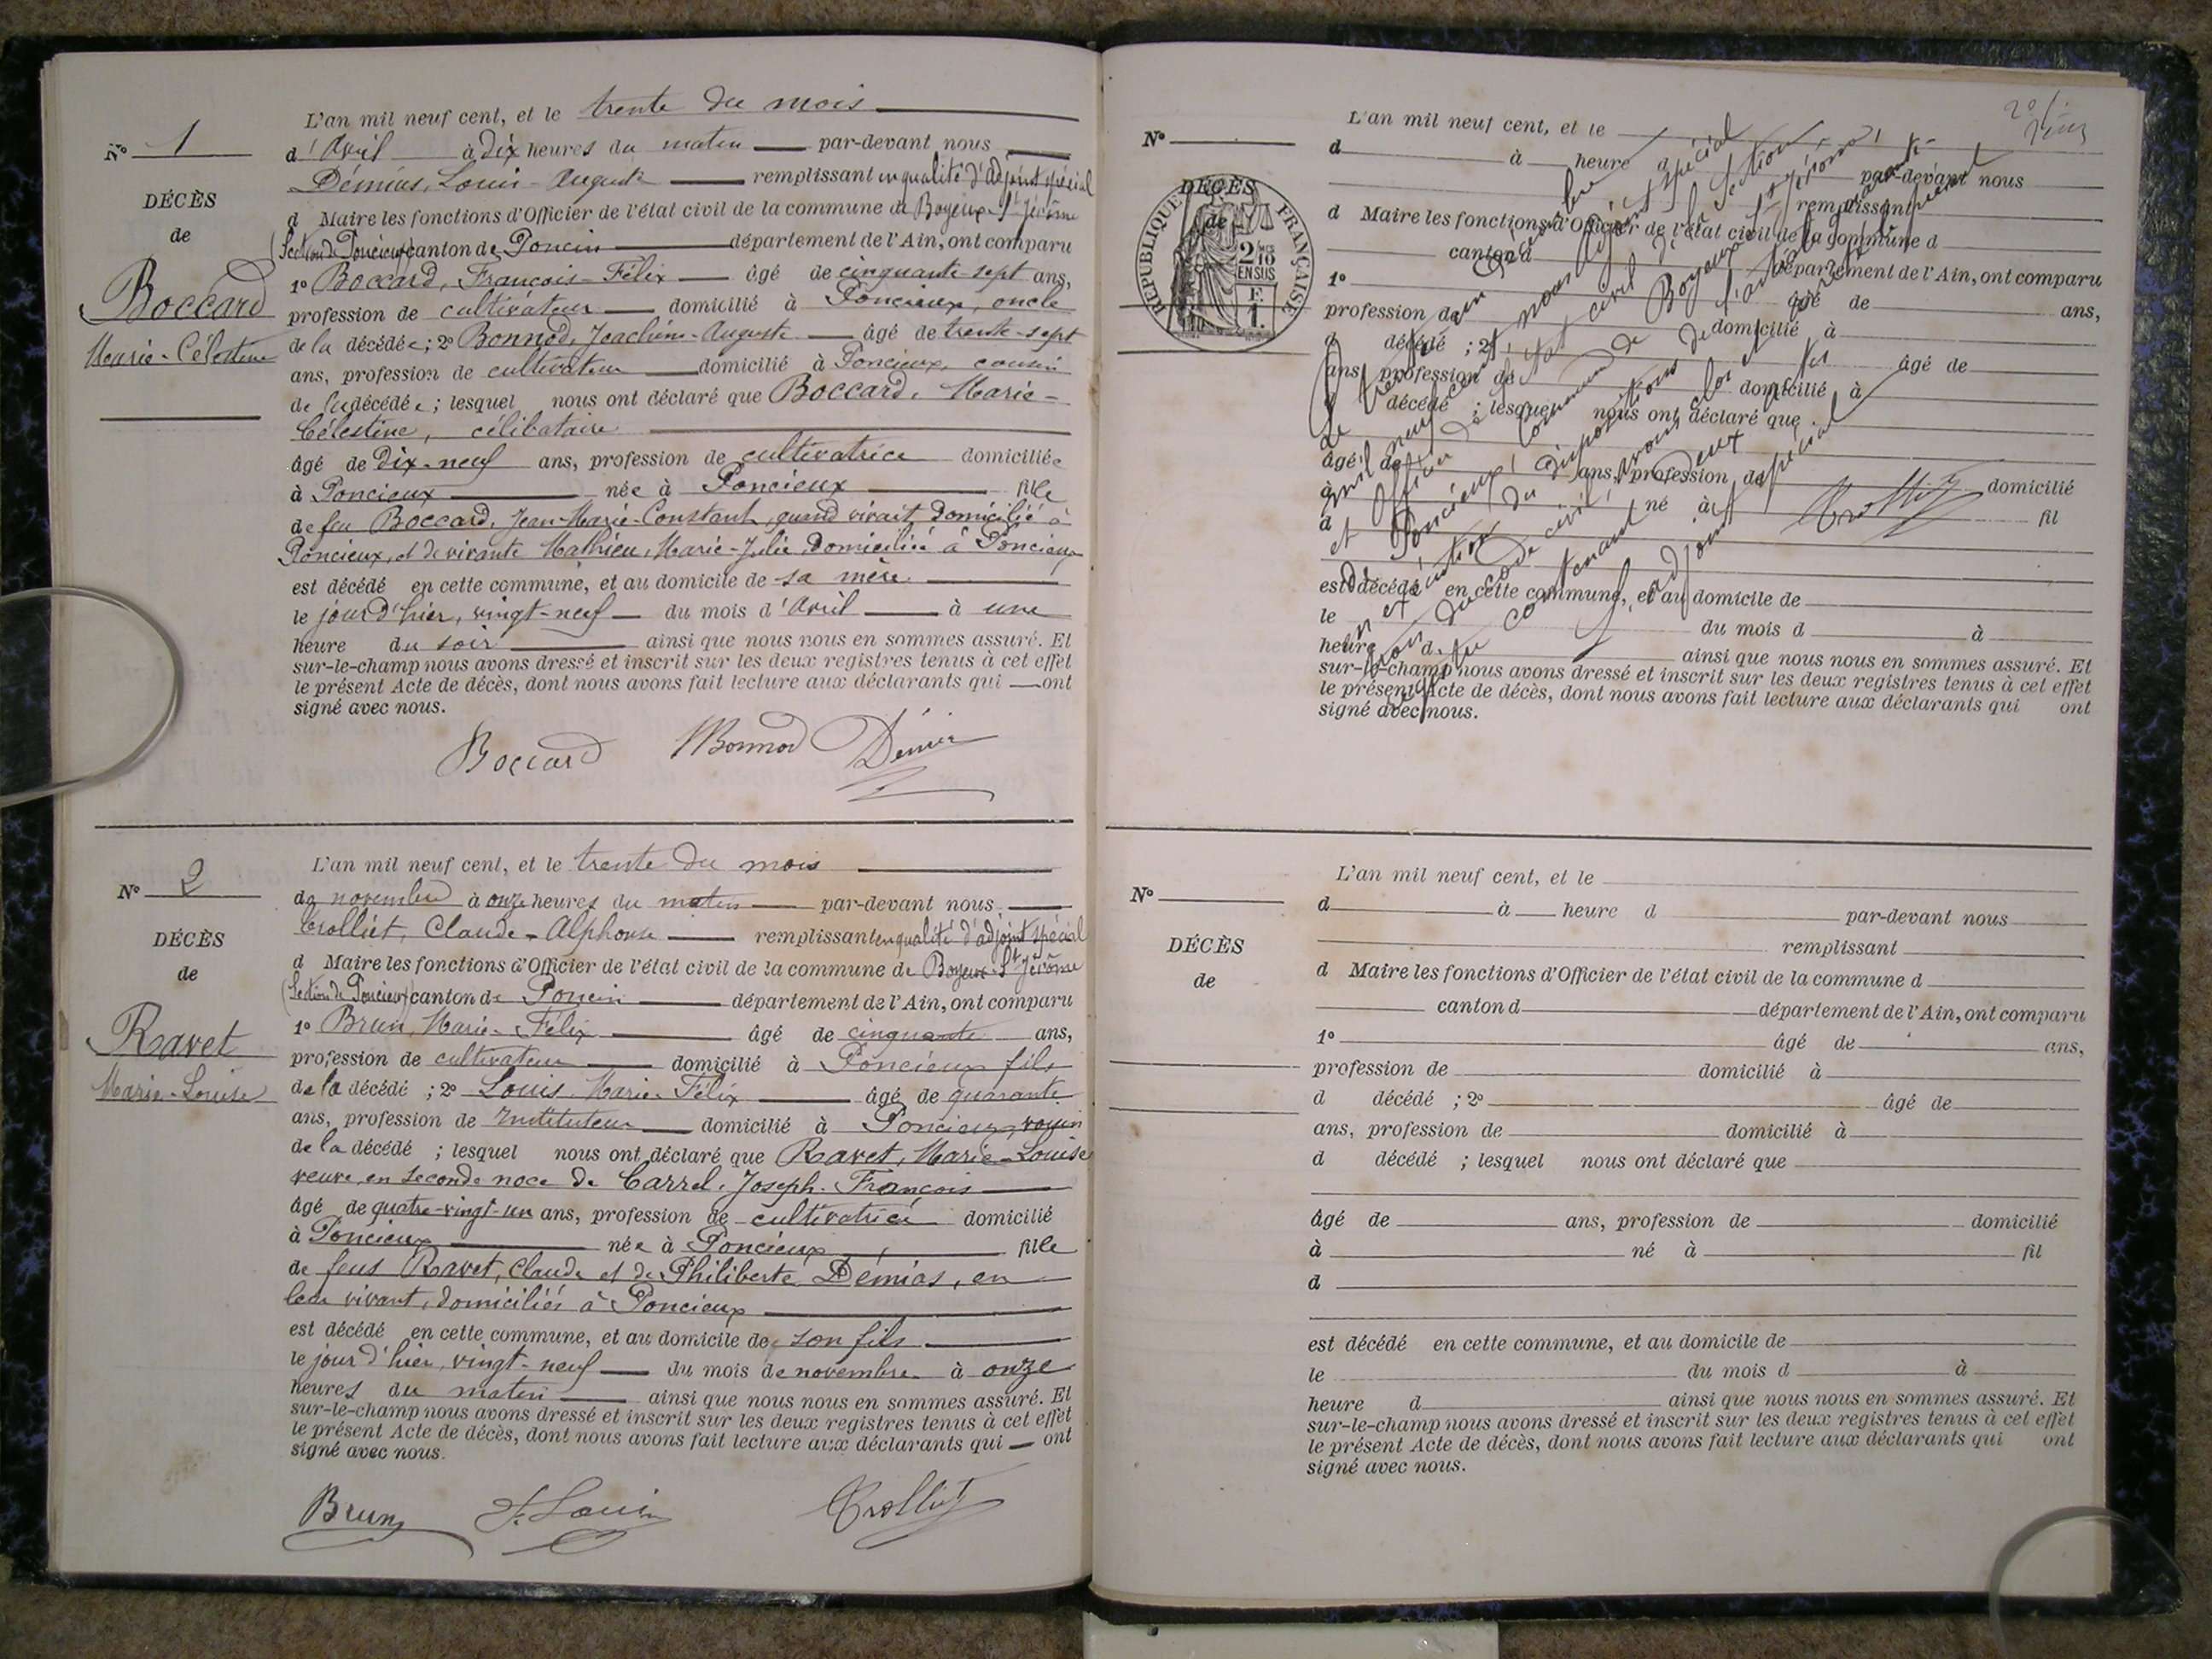 N° 1
DÉCÈS
de
Boccard
Marie-Célestine
L'an mil neuf cent, et le trente du mois
d'Avril à dix heures du matin par-devant nous
Démias, Louis-Auguste remplissant en qualité d'Adjoint spécial
d Maire les fonctions d'Officier de l'état civil de la commune de Boyeux-St Jérôme
(Section de Poncieux) canton de Poncin département de l'Ain, ont comparu
1° Boccard, François-Félix âgé de cinquante-sept ans,
profession de cultivateur domicilié à Poncieux, oncle
de la décédée; 2° Bonnod, Joachim-Auguste âgé de trente-sept
ans, profession de cultivateur domicilié à Poncieux, cousin
de la décédée; lesquel nous ont déclaré que Boccard, Marie-
Célestine, célibataire
âgé de Dix-neuf ans, profession de cultivatrice domiciliée
à Poncieux née à Poncieux fille
de feu Boccard, Jean-Marie-Constant, quand vivait domicilié à
Poncieux, et de vivante Mathieu, Marie-Julie, domiciliée à Poncieux
est décédé en cette commune, et au domicile de sa mère
le jour d'hier, vingt-neuf du mois d'Avril à une
heure du soir ainsi que nous nous en sommes assuré. Et
sur-le-champ nous avons dressé et inscrit sur les deux registres tenus à cet effet
le présent Acte de décès, dont nous avons fait lecture aux déclarants qui ont
signé avec nous.
Boccard Bonnod Démias
N° 2
DÉCÈS
de
Ravet
Marie-Louise
L'an mil neuf cent, et le trente du mois
de novembre à onze heures du matin par-devant nous
Trolliet, Claude-Alphonse remplissant en qualité d'adjoint spécial
d Maire les fonctions d'Officier de l'état civil de la commune de Boyeux-St Jérôme
(Section de Poncieux) canton de Poncin département de l'Ain, ont comparu
1° Brun, Marie-Félix âgé de cinquante ans,
profession de cultivateur domicilié à Poncieux fils
de la décédé ; 2° Louis, Marie-Félix âgé de quarante
ans, profession de Instituteur domicilié à Poncieux, voisin
de la décédé ; lesquel nous ont déclaré que Ravet, Marie-Louise
veuve en seconde noce de Carrel, Joseph-François
âgé de quatre-vingt-un ans, profession de cultivatrice domicilié
à Poncieux née à Poncieux fille
de feus Ravet, Claude et de Philiberte Démias, en
leur vivant, domiciliés à Poncieux
est décédé en cette commune, et au domicile de son fils
le jour d'hier, vingt-neuf du mois de novembre à onze
heures du matin ainsi que nous nous en sommes assuré. Et
sur-le-champ nous avons dressé et inscrit sur les deux registres tenus à cet effet
le présent Acte de décès, dont nous avons fait lecture aux déclarants qui ont
signé avec nous.
Brun F. Louis Trolliet
N°
DÉCÈS
de
RÉPUBLIQUE FRANÇAISE
2/10
EN SUS
L'an mil neuf cent, et le
d à heure d par-devant nous
remplissant
d Maire les fonctions d'Officier de l'état civil de la commune d
canton d département de l'Ain, ont comparu
1° âgé de ans,
profession de domicilié à
d décédé ; 2° âgé de
ans, profession de domicilié à
d décédé ; lesquel nous ont déclaré que
âgé de ans, profession de domicilié
à né à fil
d
est décédé en cette commune, et au domicile de
le du mois d à
heure d ainsi que nous nous en sommes assuré. Et
sur-le-champ nous avons dressé et inscrit sur les deux registres tenus à cet effet
le présent Acte de décès, dont nous avons fait lecture aux déclarants qui ont
signé avec nous.
mil neuf cent nous adjoint spécial
et Officier de l'état civil de la section
de Poncieux, commune de Boyeux St Jérôme,
en exécution du dispositions de l'article
du code civil, avons clos et arrêté le présent
contenant deux actes
L'adjoint spécial
Trolliet
N°
DÉCÈS
de
L'an mil neuf cent, et le
d à heure d par-devant nous
remplissant
d Maire les fonctions d'Officier de l'état civil de la commune d
canton d département de l'Ain, ont comparu
1° âgé de ans,
profession de domicilié à
d décédé ; 2° âgé de
ans, profession de domicilié à
d décédé ; lesquel nous ont déclaré que
âgé de ans, profession de domicilié
à né à fil
d
est décédé en cette commune, et au domicile de
le du mois d à
heure d ainsi que nous nous en sommes assuré. Et
sur-le-champ nous avons dressé et inscrit sur les deux registres tenus à cet effet
le présent Acte de décès, dont nous avons fait lecture aux déclarants qui ont
signé avec nous.